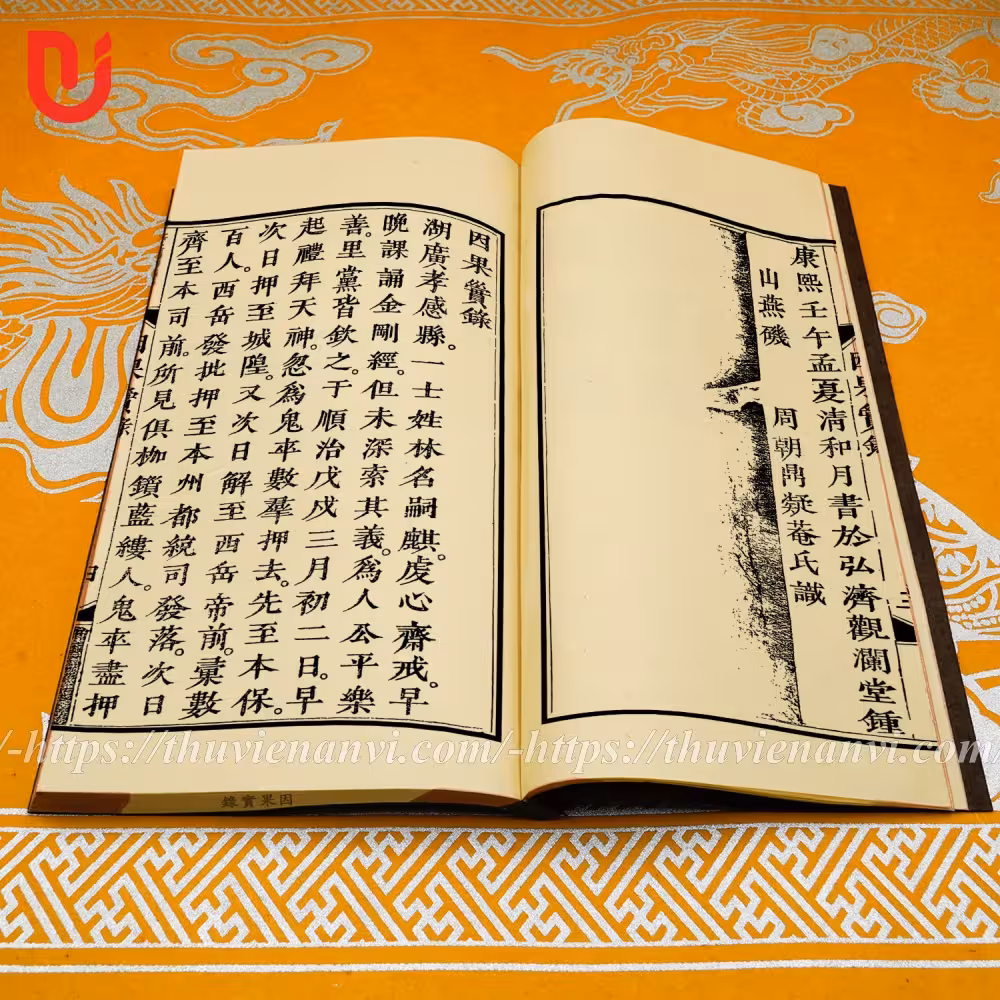 康熙壬午孟夏清和月書於弘濟觀瀾堂鍾
山燕磯 周朝鼎凝菴氏識
因果實錄
三
因果實錄
湖廣孝感縣。一士姓林名嗣麒。虔心齋戒。早
晚課誦金剛經。但未深索其義。爲人公平樂
善。里黨皆欽之。于順治戊戌三月初二日。早
起禮拜天神。忽爲鬼卒數羣押去。先至本保。
次日押至城隍。又次日解至西岳帝前。稟數
百人。西岳發批押至本州都統司發落。次日
齊至本司前。所見俱枷鎖藍縷人。鬼卒盡押
因果實錄
四
因果實錄
/-https://thuvienanvi.com/-https://thuvienanvi.com/